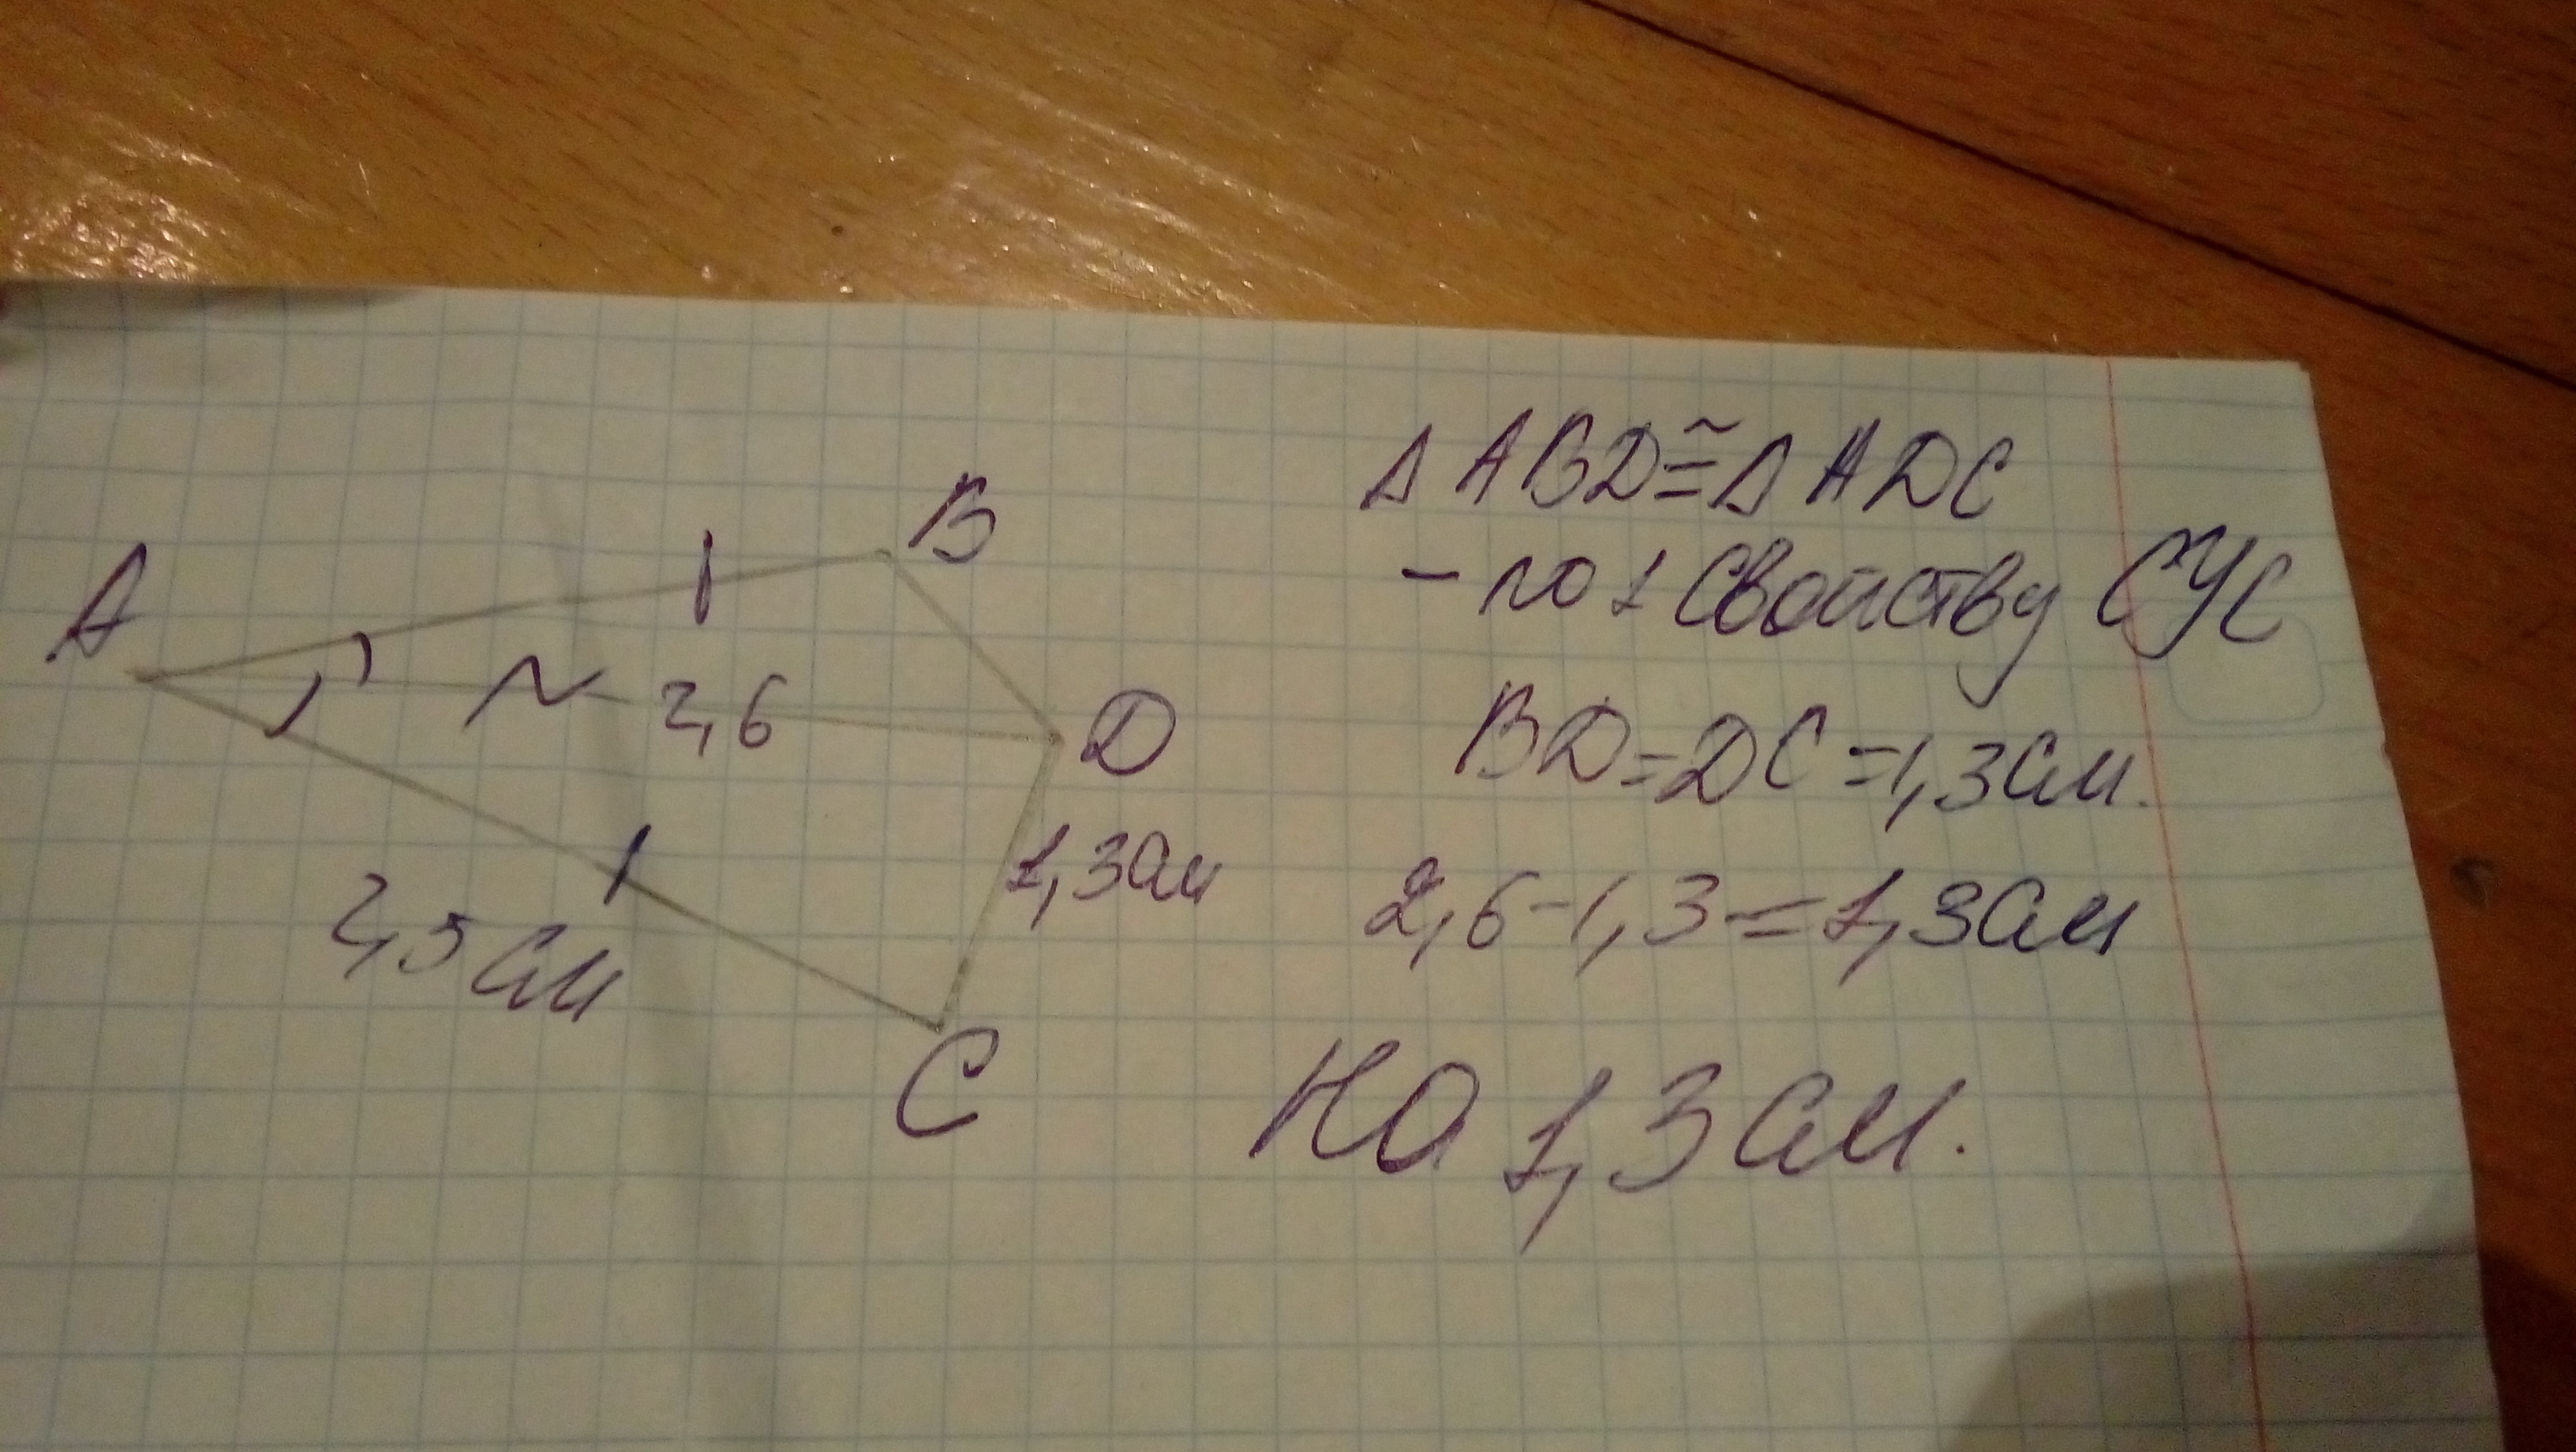 A
B
2,6
D
1,3см
2,5см
C
Δ ABD ≅ Δ ADC
- по 1 свойству СУС
BD = DC = 1,3см.
2,6 - 1,3 = 1,3см
На 1,3см.